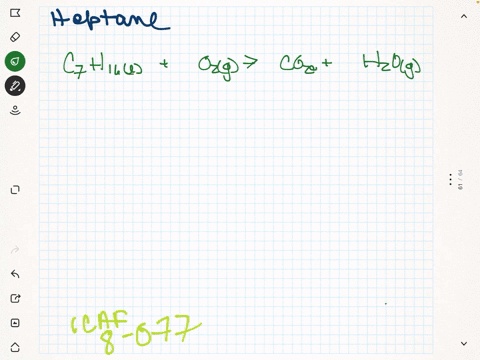 Heptane
C7H16(l) + O2(g) > CO2 + H2O(g)
ICAF
8-077
61 / 70